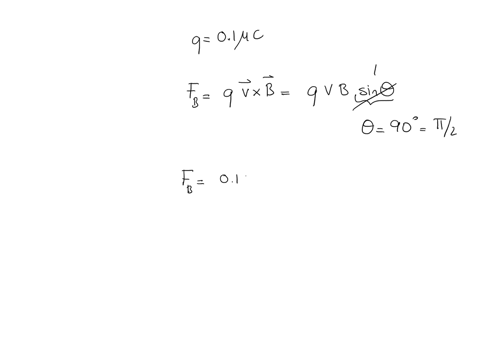 q = 0.1 μC
1
F_B = q v⃗ × B⃗ = q v B sinθ
θ = 90° = π/2
F_B = 0.1